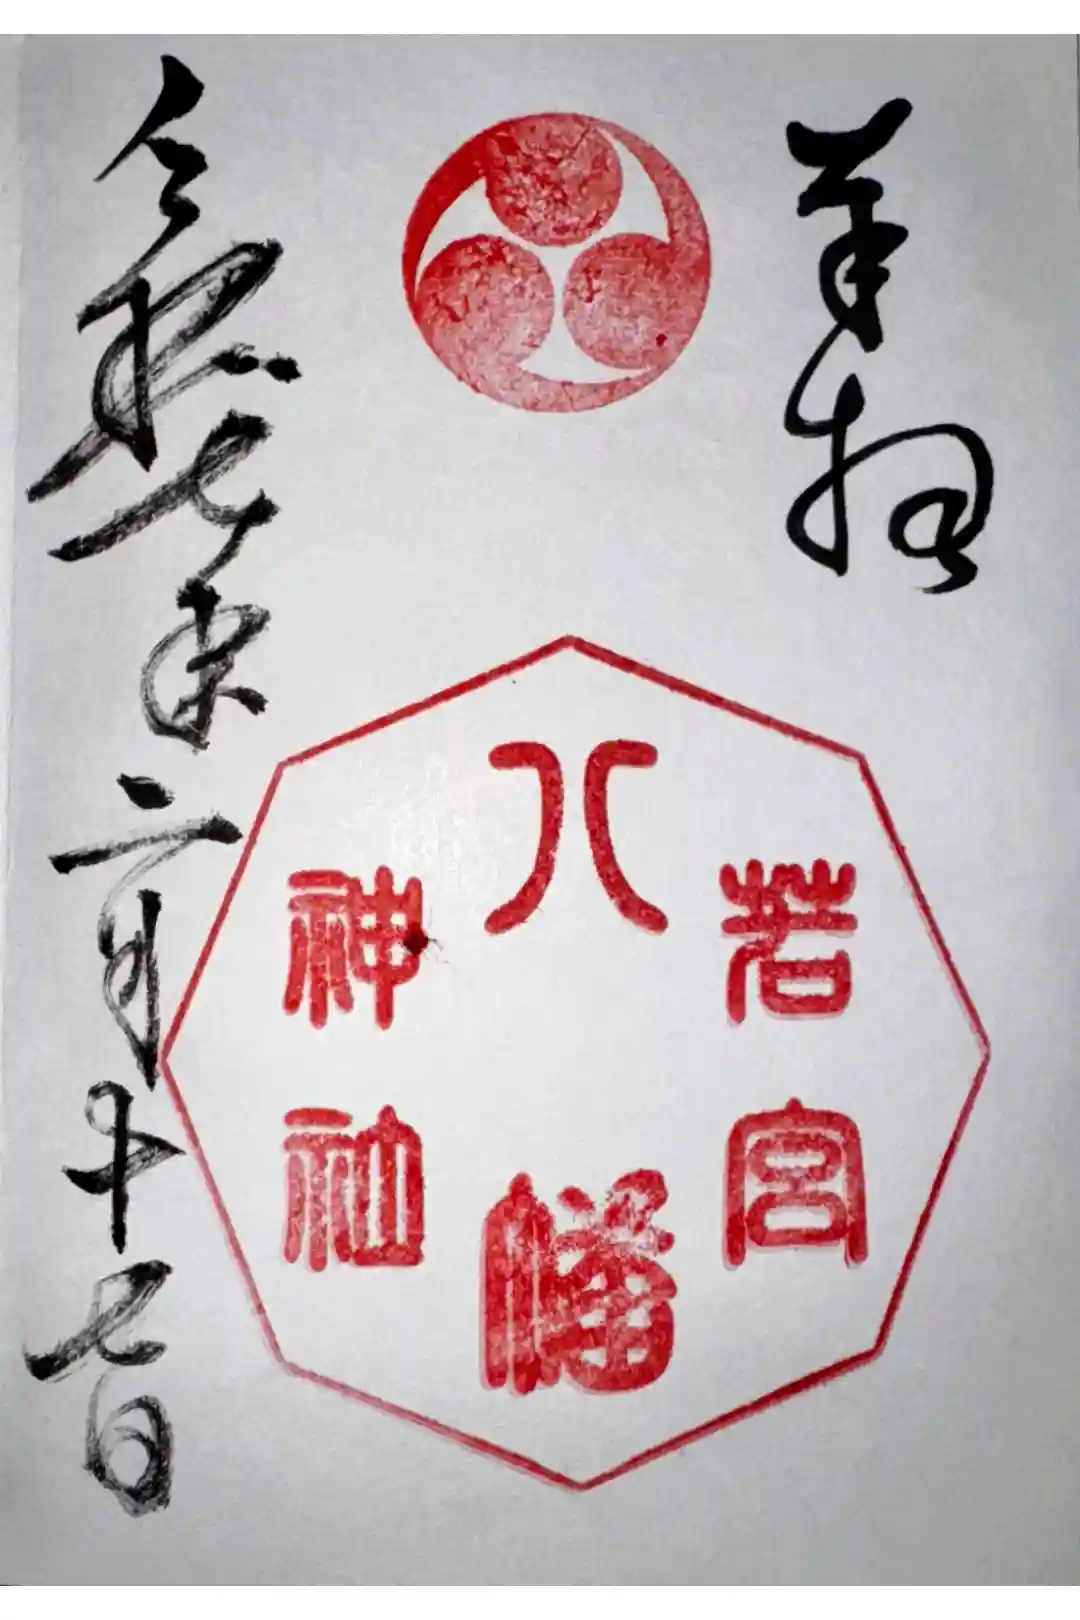 奉拝
若宮
八幡
神社
令和七年六月十七日